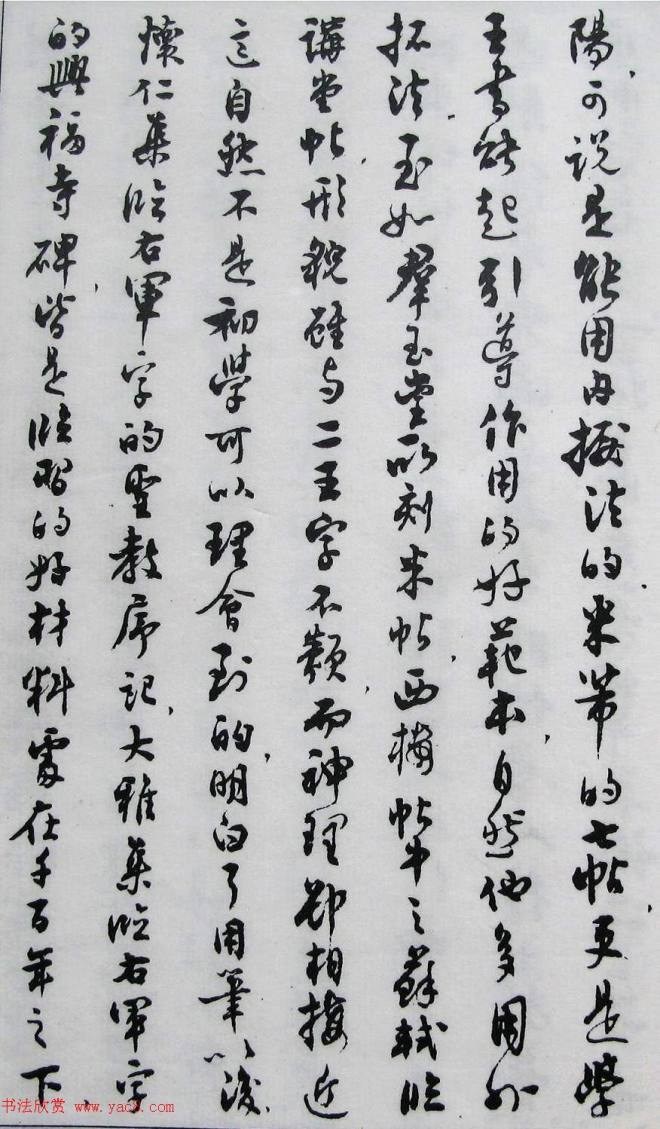 陽、可說是能用內擫法的、米芾的七帖、更是學
王書能起引導作用的好範本、自然他多用外
拓法、至如羣玉堂所刻米帖、西樓帖中之蘇軾臨
講堂帖、形貌雖与二王字不類、而神理卻相接近
這自然不是初學可以理會到的、明白了用筆以後
懷仁集臨右軍字的聖教序記、大雅集臨右軍字
的興福寺碑、皆是臨習的好材料處在千百年之下、
书法欣赏 www.yac8.com